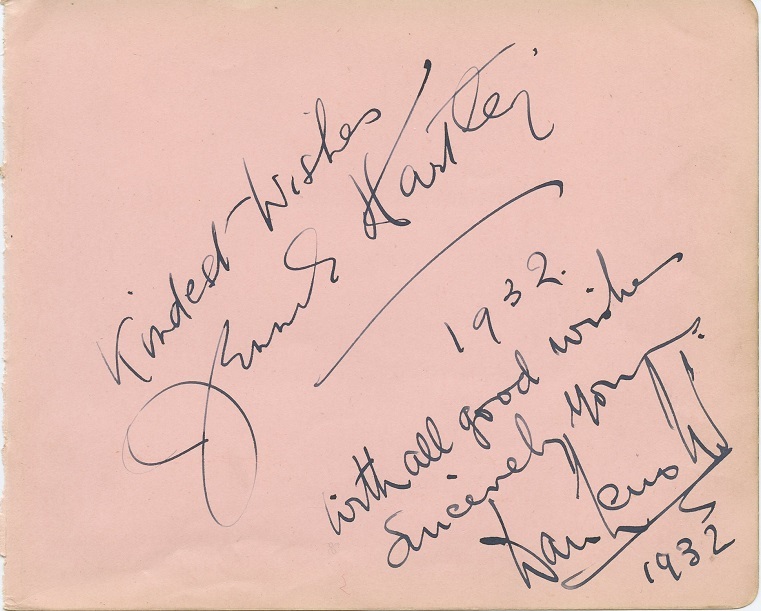 Kindest Wishes
Jennie Hartley
1932.
With all good wishes
Sincerely Yours
1932